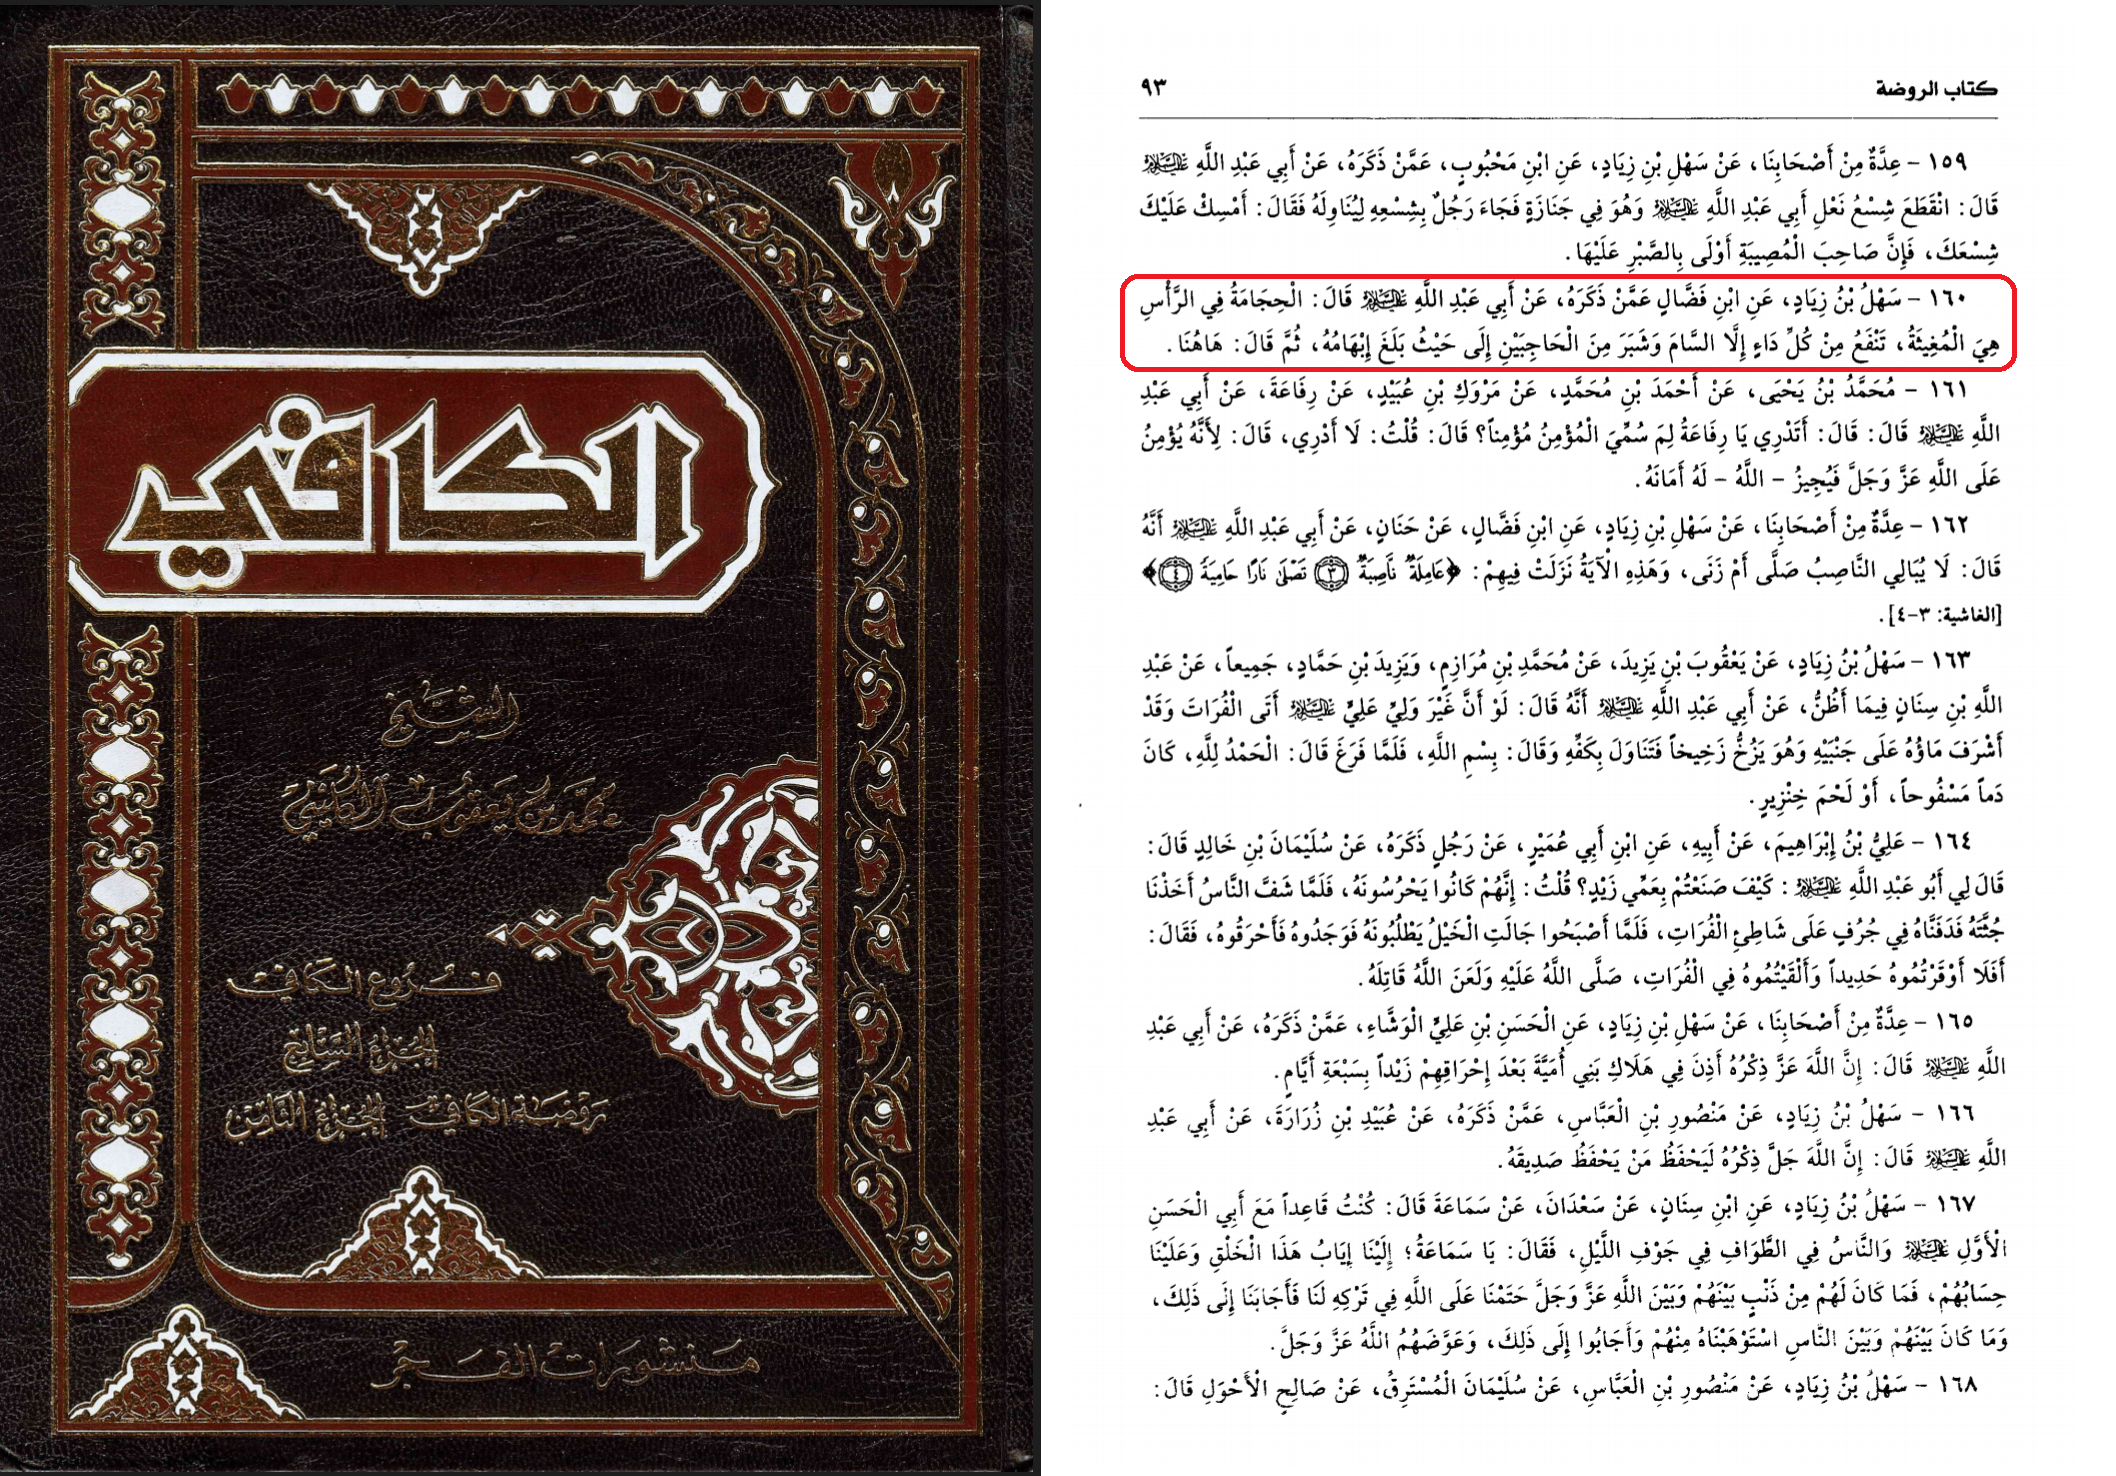 الكافي
الشيخ
محمد بن يعقوب الكليني
فروع الكافي
الجزء السابع
روضة الكافي الجزء الثامن
منشورات الفجر
كتاب الروضة
٩٣
١٥٩ - عِدَّةٌ مِنْ أَصْحَابِنَا، عَنْ سَهْلِ بْنِ زِيَادٍ، عَنِ ابْنِ مَحْبُوبٍ، عَمَّنْ ذَكَرَهُ، عَنْ أَبِي عَبْدِ اللَّهِ عليه السلام
قَالَ: انْقَطَعَ شِسْعُ نَعْلِ أَبِي عَبْدِ اللَّهِ عليه السلام وَهُوَ فِي جَنَازَةٍ فَجَاءَ رَجُلٌ بِشِسْعِهِ لِيُنَاوِلَهُ فَقَالَ: أَمْسِكْ عَلَيْكَ
شِسْعَكَ، فَإِنَّ صَاحِبَ الْمُصِيبَةِ أَوْلَى بِالصَّبْرِ عَلَيْهَا.
١٦٠ - سَهْلُ بْنُ زِيَادٍ، عَنِ ابْنِ فَضَّالٍ عَمَّنْ ذَكَرَهُ، عَنْ أَبِي عَبْدِ اللَّهِ عليه السلام قَالَ: الْحِجَامَةُ فِي الرَّأْسِ
هِيَ الْمُغِيثَةُ، تَنْفَعُ مِنْ كُلِّ دَاءٍ إِلَّا السَّامَ وَشَبَرَ مِنَ الْحَاجِبَيْنِ إِلَى حَيْثُ بَلَغَ إِبْهَامُهُ، ثُمَّ قَالَ: هَاهُنَا.
١٦١ - مُحَمَّدُ بْنُ يَحْيَى، عَنْ أَحْمَدَ بْنِ مُحَمَّدٍ، عَنْ مَرْوَكِ بْنِ عُبَيْدٍ، عَنْ رِفَاعَةَ، عَنْ أَبِي عَبْدِ
اللَّهِ عليه السلام قَالَ: قَالَ: أَتَدْرِي يَا رِفَاعَةُ لِمَ سُمِّيَ الْمُؤْمِنُ مُؤْمِناً؟ قَالَ: قُلْتُ: لَا أَدْرِي، قَالَ: لِأَنَّهُ يُؤْمِنُ
عَلَى اللَّهِ عَزَّ وَجَلَّ فَيُجِيزُ - اللَّهُ - لَهُ أَمَانَهُ.
١٦٢ - عِدَّةٌ مِنْ أَصْحَابِنَا، عَنْ سَهْلِ بْنِ زِيَادٍ، عَنِ ابْنِ فَضَّالٍ، عَنْ حَنَانٍ، عَنْ أَبِي عَبْدِ اللَّهِ عليه السلام أَنَّهُ
قَالَ: لَا يُبَالِي النَّاصِبُ صَلَّى أَمْ زَنَى، وَهَذِهِ الْآيَةُ نَزَلَتْ فِيهِمْ: ﴿عَامِلَةٌ نَّاصِبَةٌ ٣ تَصْلَىٰ نَارًا حَامِيَةً ٤﴾
[الغاشية: ٣-٤].
١٦٣ - سَهْلُ بْنُ زِيَادٍ، عَنْ يَعْقُوبَ بْنِ يَزِيدَ، عَنْ مُحَمَّدِ بْنِ مُرَازِمٍ، وَيَزِيدَ بْنِ حَمَّادٍ، جَمِيعاً، عَنْ عَبْدِ
اللَّهِ بْنِ سِنَانٍ فِيمَا أَظُنُّ، عَنْ أَبِي عَبْدِ اللَّهِ عليه السلام أَنَّهُ قَالَ: لَوْ أَنَّ غَيْرَ وَلِيِّ عَلِيٍّ عليه السلام أَتَى الْفُرَاتَ وَقَدْ
أَشْرَفَ مَاؤُهُ عَلَى جَنْبَيْهِ وَهُوَ يَزُخُّ زَخِيخاً فَتَنَاوَلَ بِكَفِّهِ وَقَالَ: بِسْمِ اللَّهِ، فَلَمَّا فَرَغَ قَالَ: الْحَمْدُ لِلَّهِ، كَانَ
دَماً مَسْفُوحاً، أَوْ لَحْمَ خِنْزِيرٍ.
١٦٤ - عَلِيُّ بْنُ إِبْرَاهِيمَ، عَنْ أَبِيهِ، عَنِ ابْنِ أَبِي عُمَيْرٍ، عَنْ رَجُلٍ ذَكَرَهُ، عَنْ سُلَيْمَانَ بْنِ خَالِدٍ قَالَ:
قَالَ لِي أَبُو عَبْدِ اللَّهِ عليه السلام: كَيْفَ صَنَعْتُمْ بِعَمِّي زَيْدٍ؟ قُلْتُ: إِنَّهُمْ كَانُوا يَحْرُسُونَهُ، فَلَمَّا شَفَّ النَّاسُ أَخَذْنَا
جُثَّتَهُ فَدَفَنَّاهُ فِي جُرُفٍ عَلَى شَاطِئِ الْفُرَاتِ، فَلَمَّا أَصْبَحُوا جَالَتِ الْخَيْلُ يَطْلُبُونَهُ فَوَجَدُوهُ فَأَحْرَقُوهُ، فَقَالَ:
أَفَلَا أَوْقَرْتُمُوهُ حَدِيداً وَأَلْقَيْتُمُوهُ فِي الْفُرَاتِ، صَلَّى اللَّهُ عَلَيْهِ وَلَعَنَ اللَّهُ قَاتِلَهُ.
١٦٥ - عِدَّةٌ مِنْ أَصْحَابِنَا، عَنْ سَهْلِ بْنِ زِيَادٍ، عَنِ الْحَسَنِ بْنِ عَلِيٍّ الْوَشَّاءِ، عَمَّنْ ذَكَرَهُ، عَنْ أَبِي عَبْدِ
اللَّهِ عليه السلام قَالَ: إِنَّ اللَّهَ عَزَّ ذِكْرُهُ أَذِنَ فِي هَلَاكِ بَنِي أُمَيَّةَ بَعْدَ إِحْرَاقِهِمْ زَيْداً بِسَبْعَةِ أَيَّامٍ.
١٦٦ - سَهْلُ بْنُ زِيَادٍ، عَنْ مَنْصُورِ بْنِ الْعَبَّاسِ، عَمَّنْ ذَكَرَهُ، عَنْ عُبَيْدِ بْنِ زُرَارَةَ، عَنْ أَبِي عَبْدِ
اللَّهِ عليه السلام قَالَ: إِنَّ اللَّهَ جَلَّ ذِكْرُهُ لَيَحْفَظُ مَنْ يَحْفَظُ صَدِيقَهُ.
١٦٧ - سَهْلُ بْنُ زِيَادٍ، عَنِ ابْنِ سِنَانٍ، عَنْ سَعْدَانَ، عَنْ سَمَاعَةَ قَالَ: كُنْتُ قَاعِداً مَعَ أَبِي الْحَسَنِ
الْأَوَّلِ عليه السلام وَالنَّاسُ فِي الطَّوَافِ فِي جَوْفِ اللَّيْلِ، فَقَالَ: يَا سَمَاعَةُ؛ إِلَيْنَا إِيَابُ هَذَا الْخَلْقِ وَعَلَيْنَا
حِسَابُهُمْ، فَمَا كَانَ لَهُمْ مِنْ ذَنْبٍ بَيْنَهُمْ وَبَيْنَ اللَّهِ عَزَّ وَجَلَّ حَتَمْنَا عَلَى اللَّهِ فِي تَرْكِهِ لَنَا فَأَجَابَنَا إِلَى ذَلِكَ،
وَمَا كَانَ بَيْنَهُمْ وَبَيْنَ النَّاسِ اسْتَوْهَبْنَاهُ مِنْهُمْ وَأَجَابُوا إِلَى ذَلِكَ، وَعَوَّضَهُمُ اللَّهُ عَزَّ وَجَلَّ.
١٦٨ - سَهْلُ بْنُ زِيَادٍ، عَنْ مَنْصُورِ بْنِ الْعَبَّاسِ، عَنْ سُلَيْمَانَ الْمُسْتَرِقِّ، عَنْ صَالِحٍ الْأَحْوَلِ قَالَ: